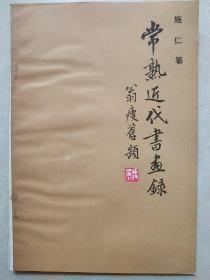 施仁纂
常熟近代書畫録
翁瘦蒼題